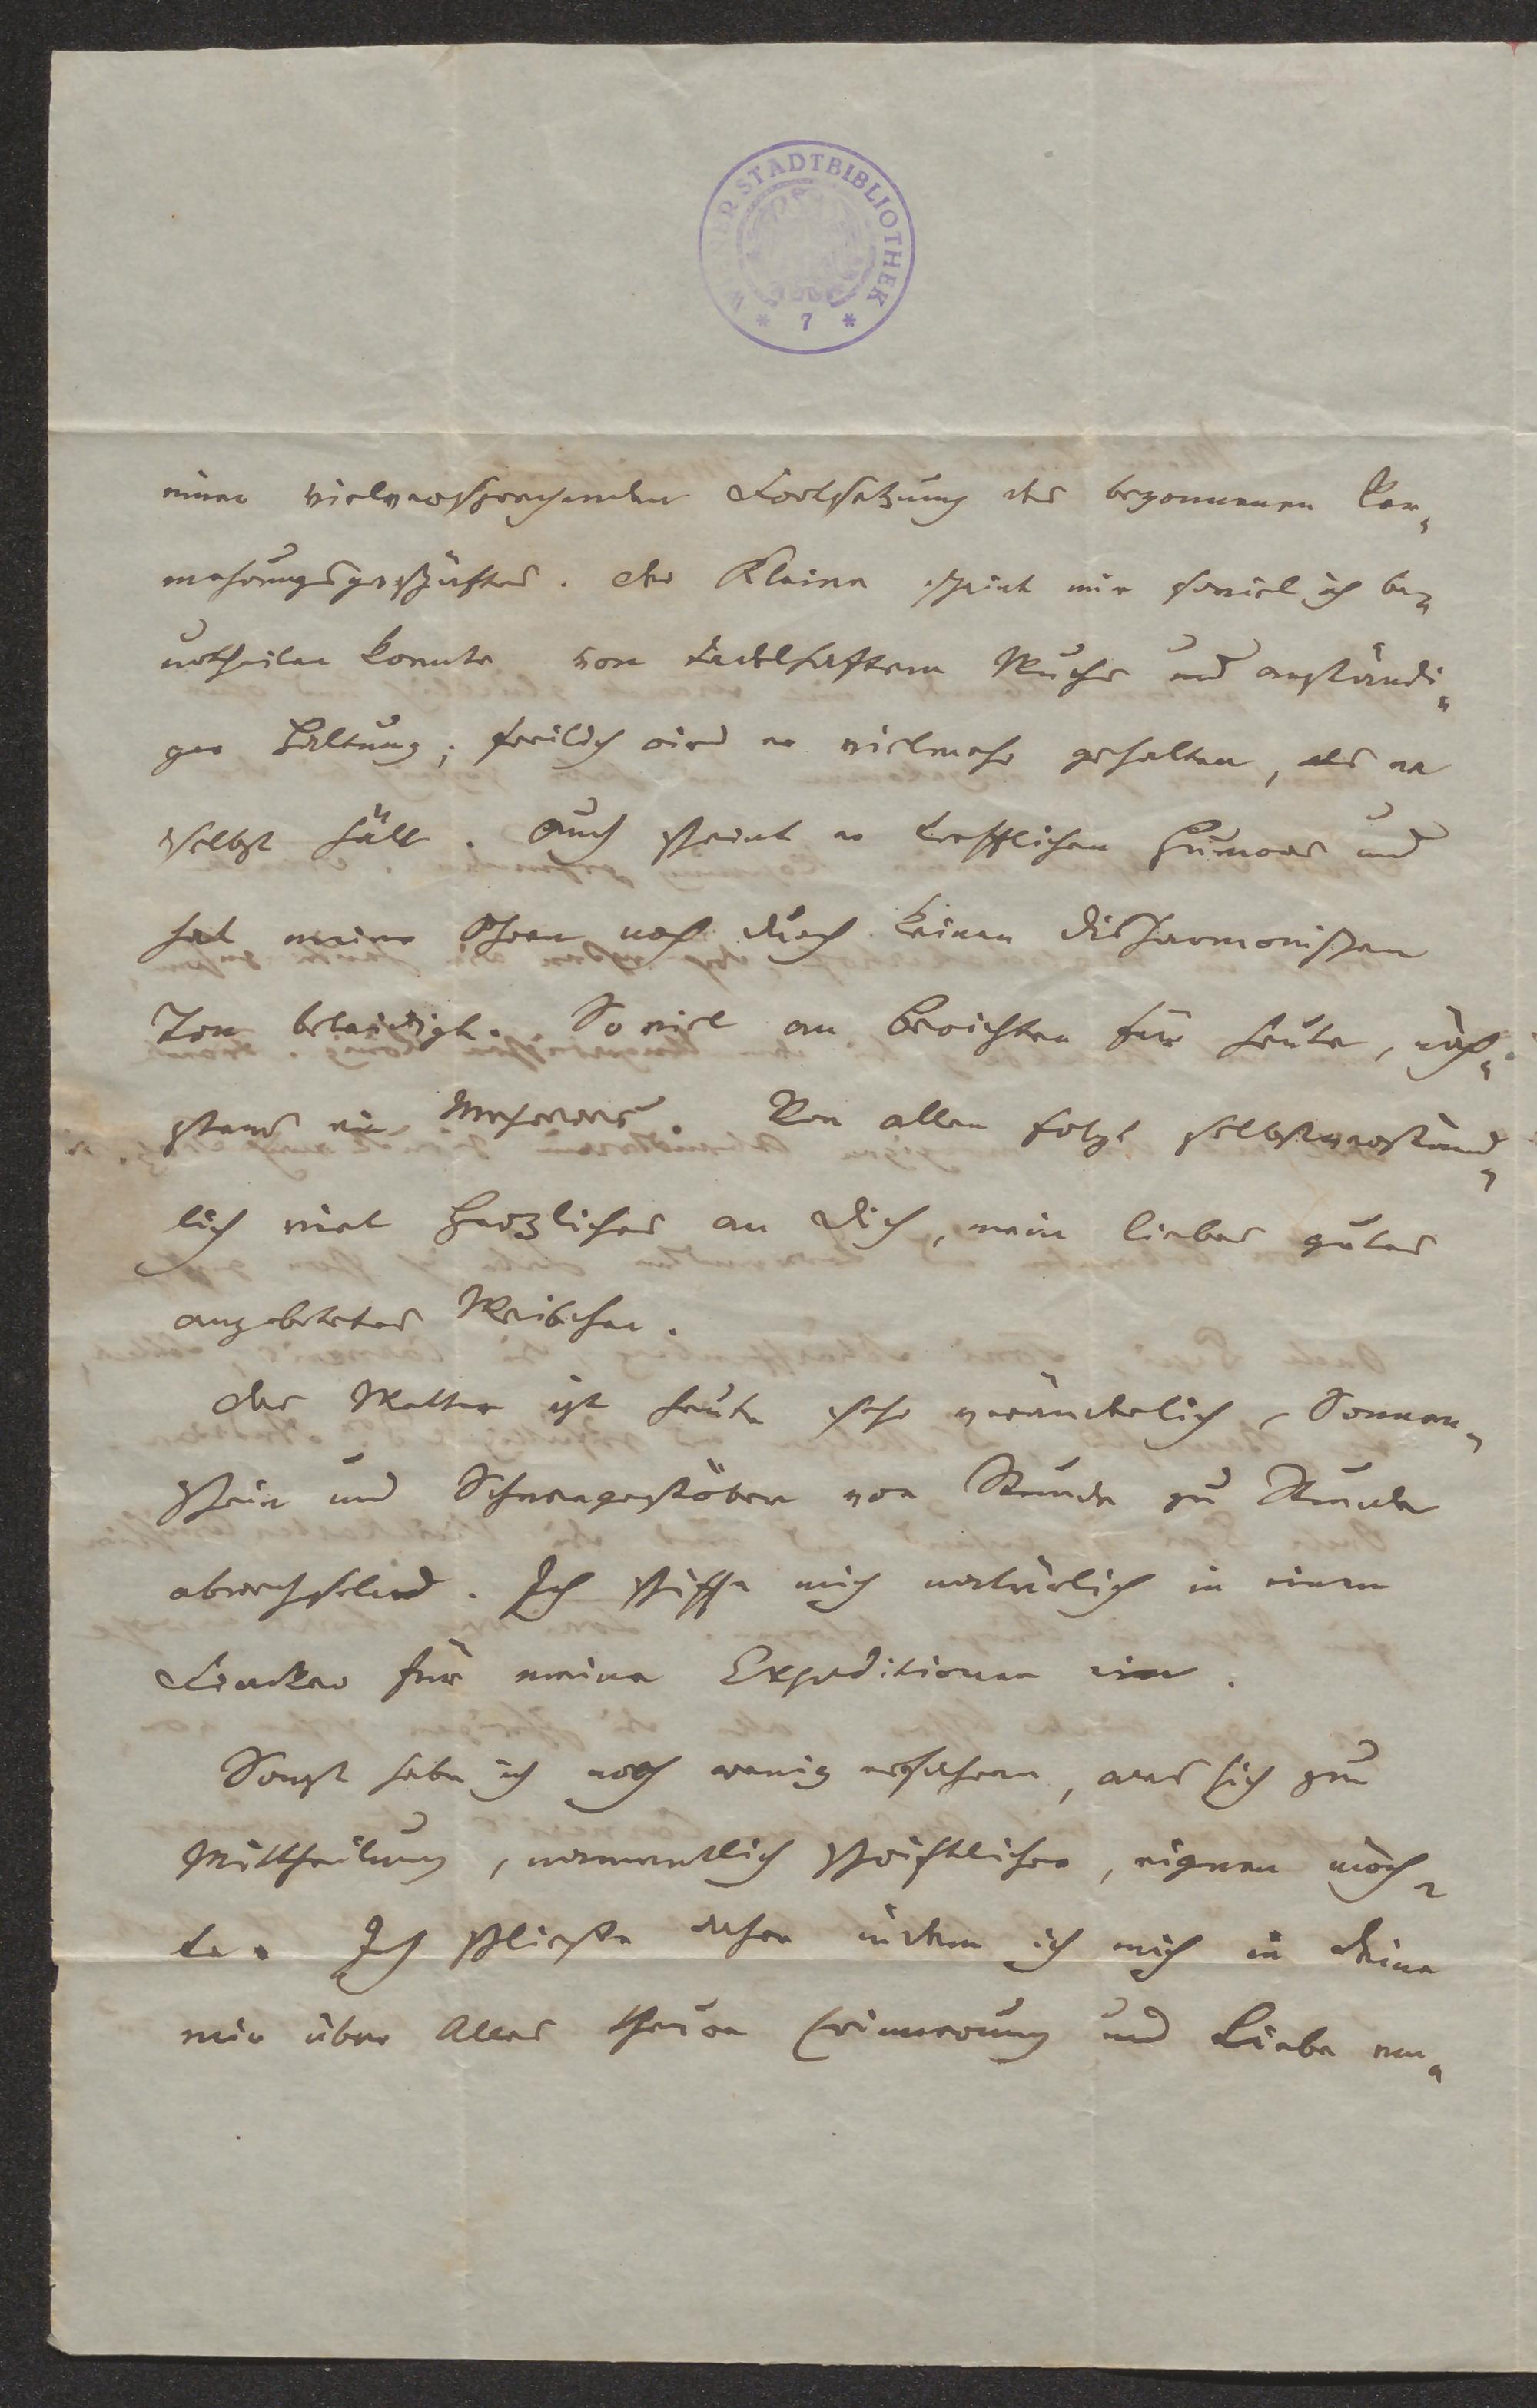 WIENER STADTBIBLIOTHEK
* 7 *
einer vielversprechenden Fortsetzung des begonnenen Ver„
mehrungsgeschäftes. Der Kleine scheint mir soviel ich be„
urtheilen konnte von tadelhaftem Wuchs und anständi„
ger Haltung; freilich wird er vielmehr gehalten, als er
selbst hält. Auch scheint er trefflichen Humors und
hat meine Ohren noch durch keinen disharmonischen
Ton beleidigt. So viel an Berichten für heute, näch„
stens ein Mehreres. Von allen folgt selbstverständ„
lich viel Herzliches an Dich, mein liebes gutes
angebetetes Weibchen.
Das Wetter ist heute sehr veränderlich, Sonnen„
schein und Schneegestöber von Stunde zu Stunde
abwechselnd. Ich schiffe mich natürlich in einen
Fiacker für meine Expeditionen ein.
Sonst habe ich noch wenig erfahren, was sich zur
Mittheilung, namentlich schriftlicher, eignen möch„
te. Ich schließe daher indem ich mich in Deine
mir über Alles theure Erinnerung und Liebe em„